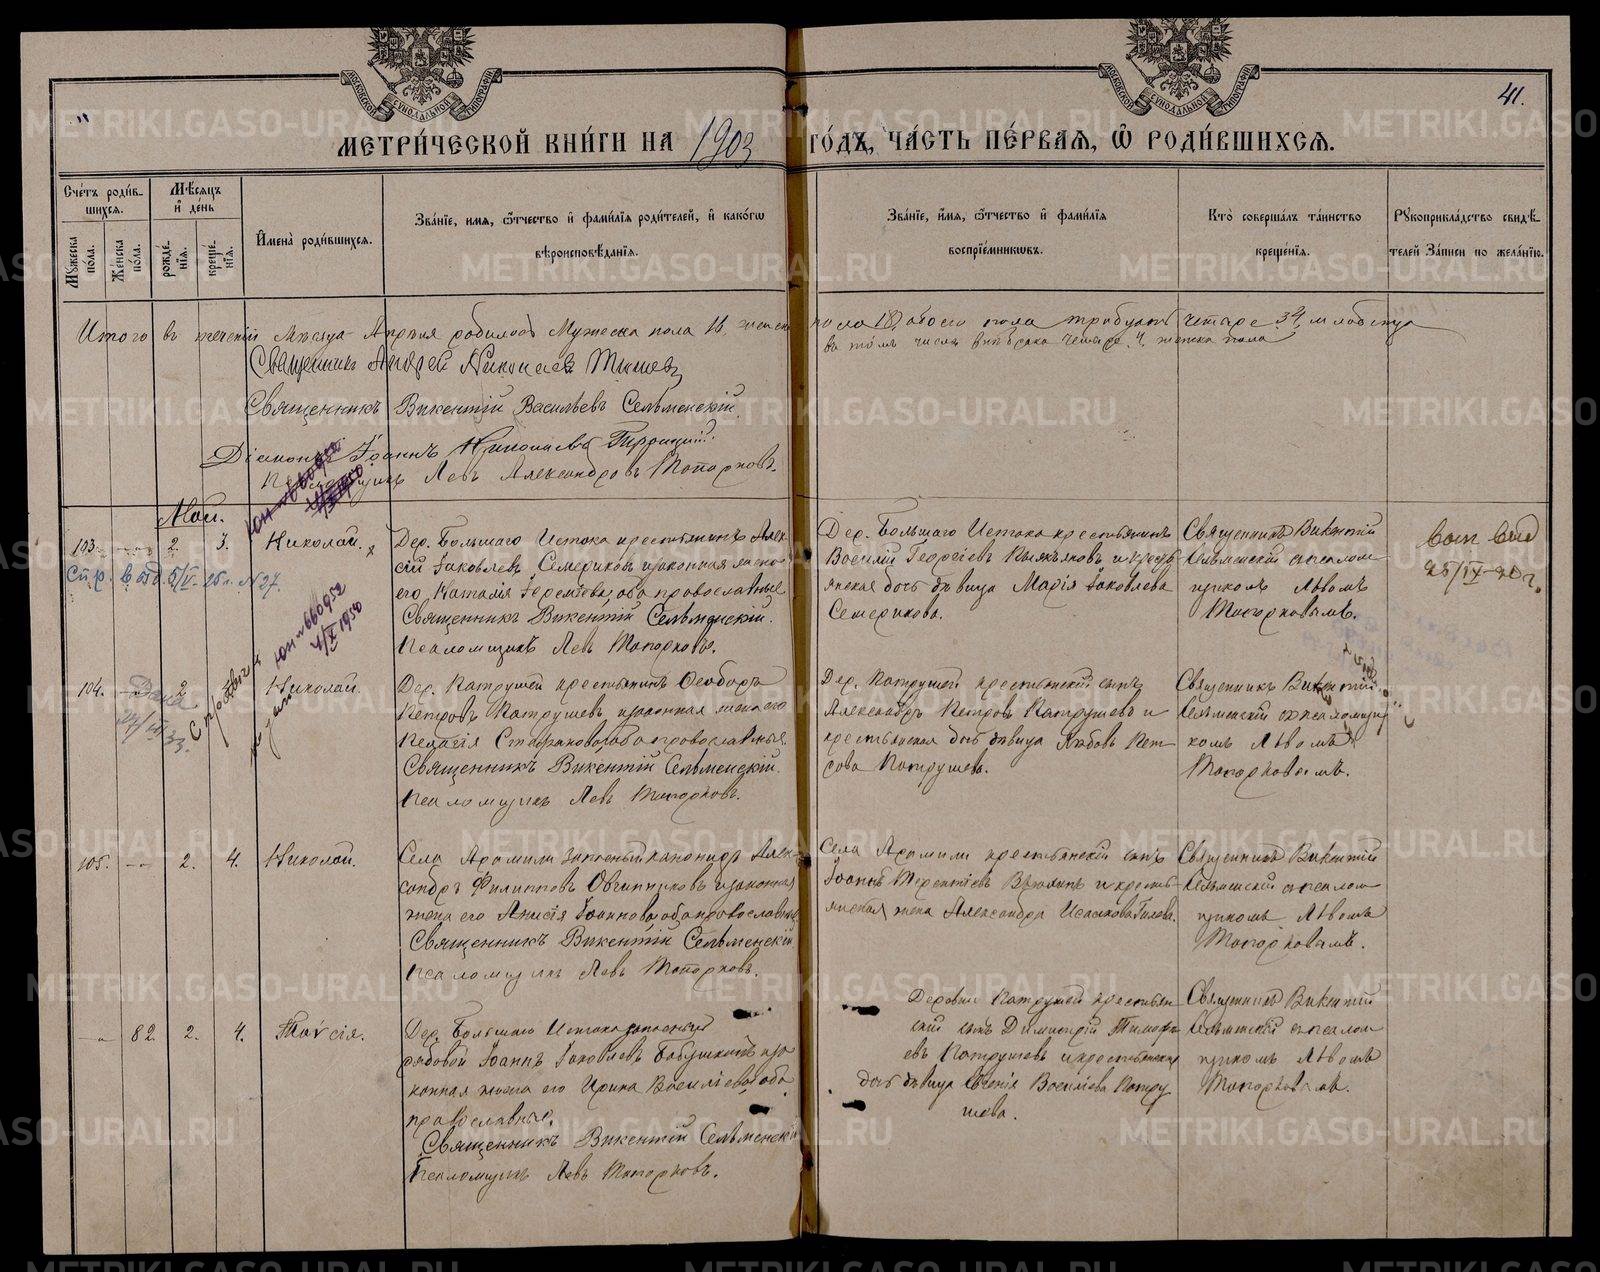 41.
МОСКОВСКОЙ СѴНОДАЛЬНОЙ ТИПОГРАФІИ
МОСКОВСКОЙ СѴНОДАЛЬНОЙ ТИПОГРАФІИ
МЕТРИ́ЧЕСКОЙ КНИ́ГИ НА 1903 ГО́ДЪ, ЧА́СТЬ ПЕ́РВАѦ, Ѡ҆ РОДИ́ВШИХСѦ.
Сче́тъ роди́в-
шихсѧ.
Мѣ́сѧцъ
и҆ де́нь
Мꙋ́жеска по́ла.
Же́нска по́ла.
рожде́нїѧ.
креще́нїѧ.
И҆мена̀ роди́вшихсѧ.
Зва́нїе, и҆мѧ, ѻ҆́тчество и҆ фами́лїѧ роди́телей, и҆ како́гѡ
вѣроисповѣ́данїѧ.
Зва́нїе, и҆́мѧ, ѻ҆́тчество и҆ фами́лїѧ
воспрїе́мникѡвъ.
Кто̀ соверша́лъ та́инство
креще́нїѧ.
Рꙋкоприкла́дство свидѣ́-
телей За́писи по жела́нїю.
Итого въ теченіи мѣсяца Апрѣля родилось Мужеска пола 16, женска пола 18, обоего пола тридцать четыре 34 младенца
въ томъ числѣ
Священникъ Андрей Николаевъ
Священникъ Викентій Васильевъ Сельменскій.
Діаконъ Іоаннъ Николаевъ
Псаломщикъ Левъ Александровъ Топорковъ.
Май.
103. 2. 3. Николай.
Дер. Большаго Истока крестьянинъ Алек-
сій Іаковлевъ Семериковъ и законная жена
его Наталія Іереміева, оба православные
Священникъ Викентій Сельменскій.
Псаломщикъ Левъ Топорковъ.
Дер. Большаго Истока крестьянинъ
Василій Георгіевъ и кресть-
янская дочь дѣвица Марія Іаковлева
Семерикова.
Священникъ Викентій
Сельменскій съ псалом-
щикомъ Львомъ
Топорковымъ.
25/IX-20 г.
ЮП № 660952
4/X 1950
104. 2 Николай.
Дер. Патрушей крестьянинъ Ѳеодоръ
Петровъ Патрушевъ и законная жена его
Пелагія оба православные.
Священникъ Викентій Сельменскій.
Псаломщикъ Левъ Топорковъ.
Дер. Патрушей крестьянскій сынъ
Александръ Петровъ Патрушевъ и
крестьянская дочь дѣвица Любовь Пет-
рова Патрушева.
Священникъ Викентій
Сельменскій съ псаломщи-
комъ Львомъ
Топорковымъ.
105. 2. 4. Николай.
Села Арамили запасный Алек-
сандръ Филипповъ Овчинниковъ и законная
жена его Анисія Іоаннова, оба православные
Священникъ Викентій Сельменскій
Псаломщикъ Левъ Топорковъ.
Села Арамили крестьянскій сынъ
Іоаннъ Терентіевъ и кресть-
янская жена Александра Исаакова
Священникъ Викентій
Сельменскій съ псалом-
щикомъ Львомъ
Топорковымъ.
82. 2. 4. Таисія.
Дер. Большаго Истока запасный
рядовой Іоаннъ Іаковлевъ Бабушкинъ и за-
конная жена его Ирина Василіева, оба
православные.
Священникъ Викентій Сельменскій
Псаломщикъ Левъ Топорковъ.
Деревни Патрушей крестьян-
скій сынъ Димитрій Тимоѳе-
евъ Патрушевъ и крестьянская
дочь дѣвица Евгенія Василіева Патру-
шева.
Священникъ Викентій
Сельменскій съ псалом-
щикомъ Львомъ
Топорковымъ.
METRIKI.GASO-URAL.RU